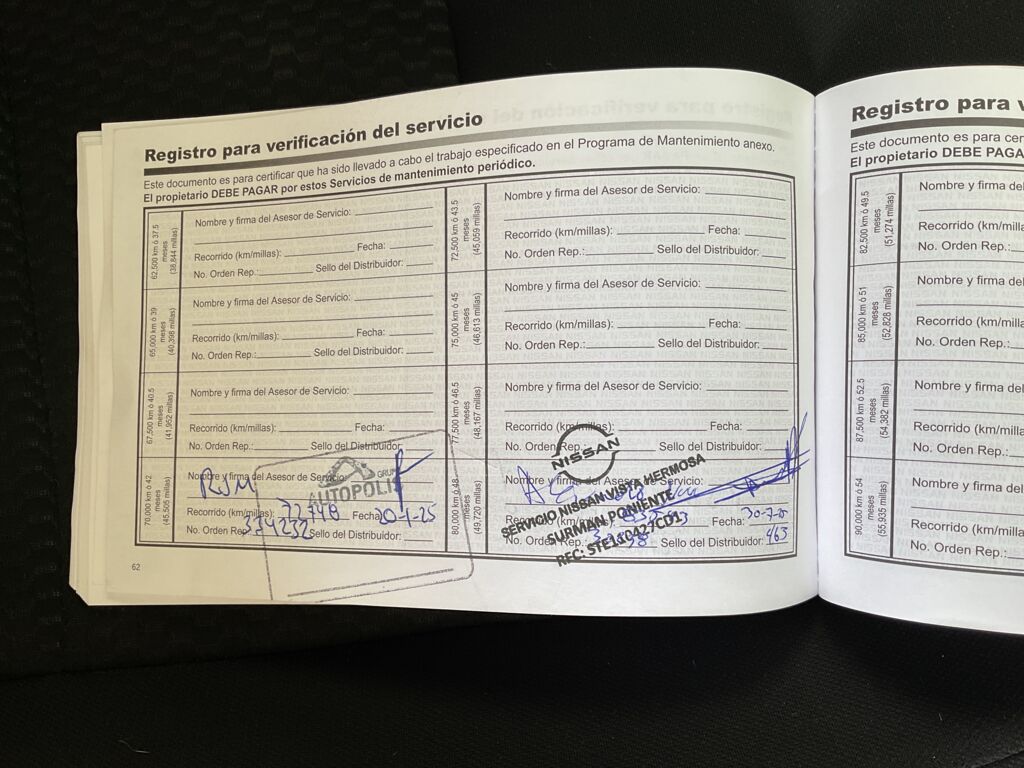 Registro para verificación del servicio
Este documento es para certificar que ha sido llevado a cabo el trabajo especificado en el Programa de Mantenimiento anexo.
El propietario DEBE PAGAR por estos Servicios de mantenimiento periódico.
62,500 km ó 37.5
meses
(38,844 millas)
Nombre y firma del Asesor de Servicio:
Recorrido (km/millas): Fecha:
No. Orden Rep.: Sello del Distribuidor:
65,000 km ó 39
meses
(40,398 millas)
Nombre y firma del Asesor de Servicio:
Recorrido (km/millas): Fecha:
No. Orden Rep.: Sello del Distribuidor:
67,500 km ó 40.5
meses
(41,952 millas)
Nombre y firma del Asesor de Servicio:
Recorrido (km/millas): Fecha:
No. Orden Rep.: Sello del Distribuidor:
70,000 km ó 42
meses
(43,506 millas)
Nombre y firma del Asesor de Servicio:
GRUPO
AUTOPOLIS
Recorrido (km/millas): 72748 Fecha: 20-1-25
No. Orden Rep.: 334232 Sello del Distribuidor:
72,500 km ó 43.5
meses
(45,059 millas)
Nombre y firma del Asesor de Servicio:
Recorrido (km/millas): Fecha:
No. Orden Rep.: Sello del Distribuidor:
75,000 km ó 45
meses
(46,613 millas)
Nombre y firma del Asesor de Servicio:
Recorrido (km/millas): Fecha:
No. Orden Rep.: Sello del Distribuidor:
77,500 km ó 46.5
meses
(48,167 millas)
Nombre y firma del Asesor de Servicio:
Recorrido (km/millas): Fecha:
No. Orden Rep.: Sello del Distribuidor:
80,000 km ó 48
meses
(49,720 millas)
NISSAN
Nombre y firma del Asesor de Servicio:
SERVICIO NISSAN VISTA HERMOSA
SURMAN PONIENTE
Recorrido (km/millas): Fecha: 30-7-25
No. Orden Rep.: Sello del Distribuidor: 463
62
Registro para v
Este documento es para cer
El propietario DEBE PAGA
82,500 km ó 49.5
meses
(51,274 millas)
Nombre y firma del
Recorrido (km/milla
No. Orden Rep.:
85,000 km ó 51
meses
(52,828 millas)
Nombre y firma del
Recorrido (km/milla
No. Orden Rep.:
87,500 km ó 52.5
meses
(54,382 millas)
Nombre y firma del
Recorrido (km/milla
No. Orden Rep.:
90,000 km ó 54
meses
(55,935 millas)
Nombre y firma de
Recorrido (km/mill
No. Orden Rep.: